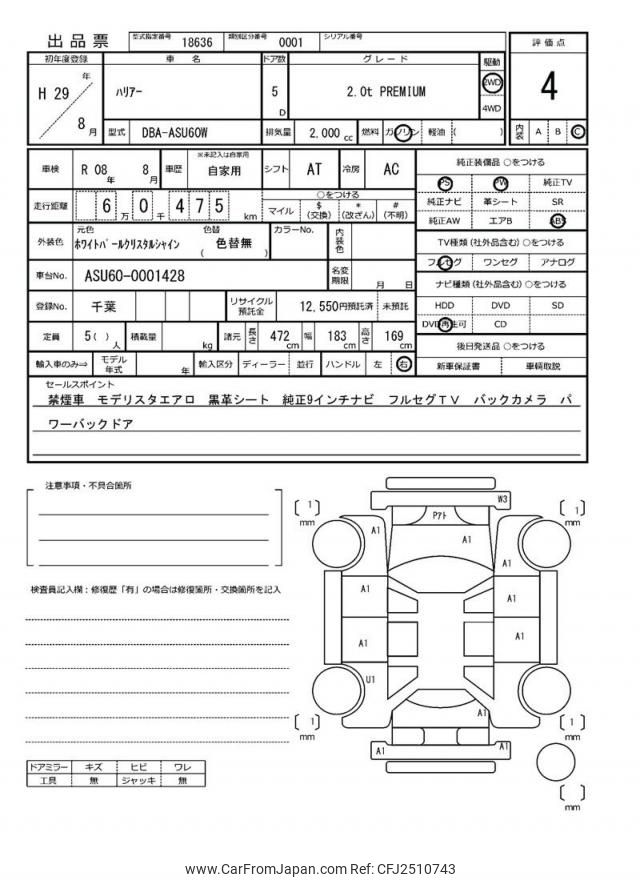 出品票 型式指定番号 18636 類別区分番号 0001 シリアル番号
初年度登録 車 名 ドア数 グレード 駆動 評価点
H 29 年 8 月 ハリアー 5 D 2.0t PREMIUM 2WD 4WD 4
型式 DBA-ASU60W 排気量 2,000 cc 燃料 ガソリン 軽油 ( ) 内装 A B C
車検 R 08 年 8 月 車歴 ※未記入は自家用 自家用 シフト AT 冷房 AC
純正装備品 ○をつける
PS PW 純正TV
走行距離 6 万 0 千 4 7 5 km ○をつける
マイル $ (交換) * (改ざん) # (不明)
純正ナビ 革シート SR
純正AW エアB ABS
外装色 元色 ホワイトパールクリスタルシャイン 色替 ( 色替無 ) カラーNo. 内装色
TV種類(社外品含む) ○をつける
フルセグ ワンセグ アナログ
車台No. ASU60-0001428 名変期限 月 日
ナビ種類(社外品含む) ○をつける
登録No. 千葉 リサイクル預託金 12,550円預託済 未預託
HDD DVD SD
DVD再生可 CD
定員 5( ) 人 積載量 kg 諸元 長さ 472 cm 幅 183 cm 高さ 169 cm
後日発送品 ○をつける
輸入車のみ⇒ モデル年式 年 輸入区分 ディーラー 並行 ハンドル 左 右
新車保証書 車輌取説
セールスポイント
禁煙車 モデリスタエアロ 黒革シート 純正9インチナビ フルセグTV バックカメラ パ
ワーバックドア
注意事項・不具合箇所
検査員記入欄：修復歴「有」の場合は修復箇所・交換箇所を記入
[ 1 ] mm
W3
Pアト
[ 1 ] mm
A1
A1
A1
A1
A1
A1
A1
U1
A1
[ 1 ] mm
[ 1 ] mm
A1
A1
[ ] mm
ドアミラー キズ ヒビ ワレ
工具 無 ジャッキ 無
www.CarFromJapan.com Ref: CFJ2510743